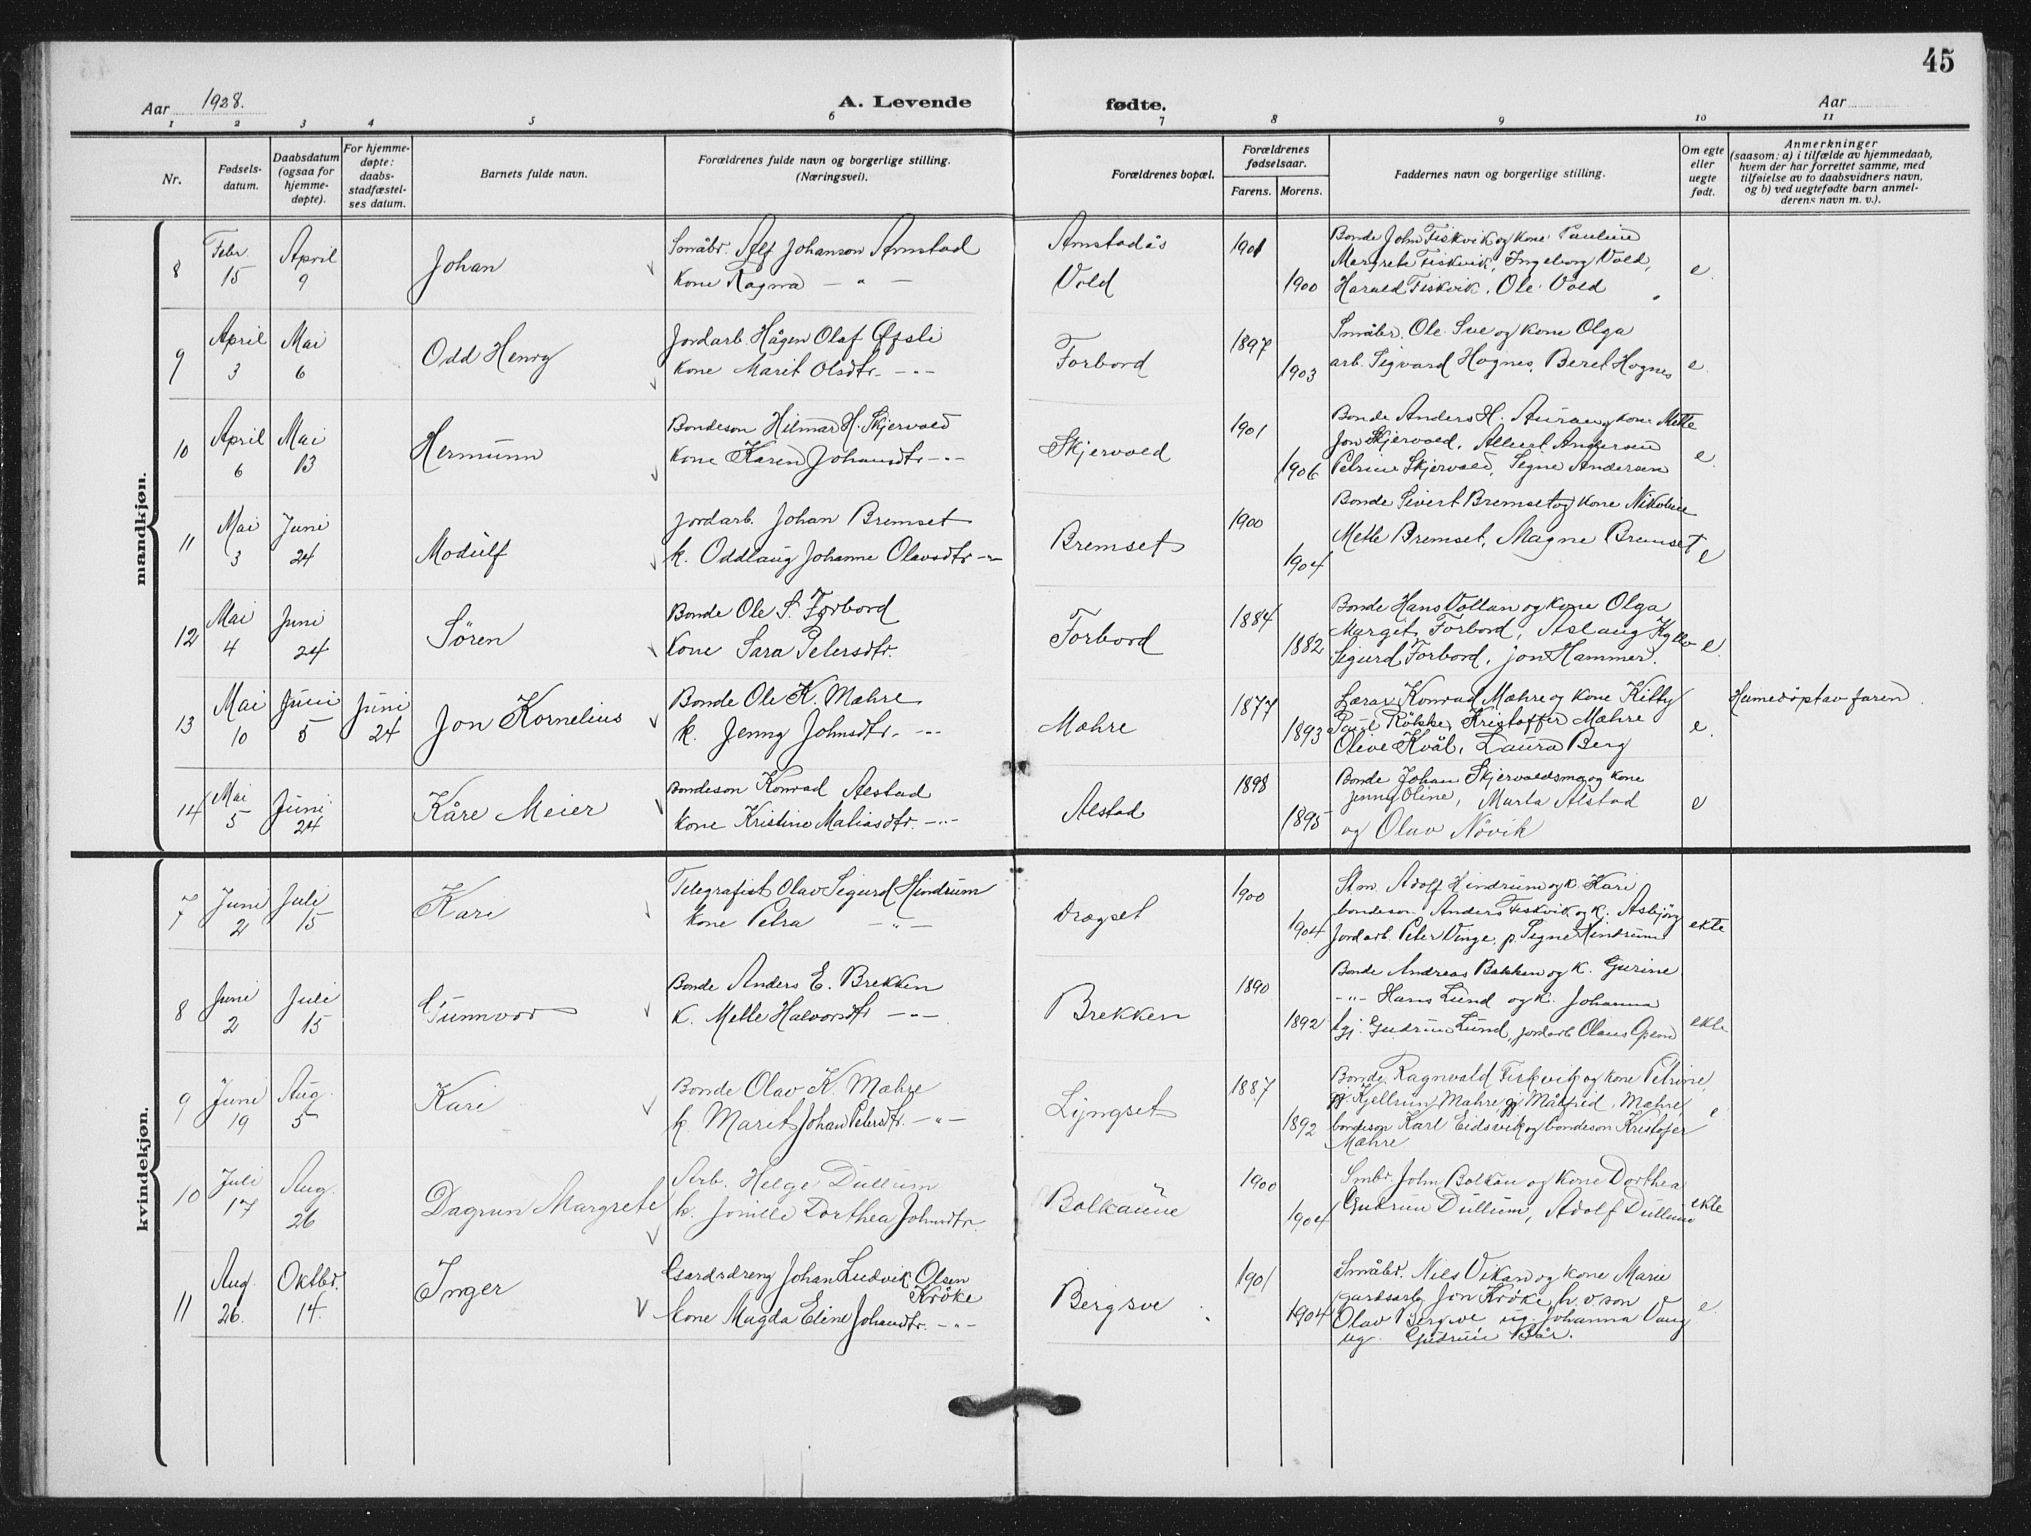 45
Aar 1928.
A. Levende fødte.
Aar
1 2 3 4 5 6 7 8 9 10 11
Nr.
Fødsels-
datum.
Daabsdatum
(ogsaa for
hjemme-
døpte).
For hjemme-
døpte:
daabs-
stadfæstel-
ses datum.
Barnets fulde navn.
Forældrenes fulde navn og borgerlige stilling.
(Næringsvei).
Forældrenes bopæl.
Forældrenes
fødselsaar.
Farens. Morens.
Faddernes navn og borgerlige stilling.
Om egte
eller
uegte
født.
Anmerkninger
(saasom: a) i tilfælde av hjemmedaab,
hvem der har forrettet samme, med
tilføielse av to daabsvidners navn,
og b) ved uegtefødte barn anmel-
derens navn m. v.).
mandkjøn.
8
Febr.
15
April
9
Johan
Småbr. Alf Johanson Arnstad
kone Ragna — " —
Arnstadås
Vold
1901
1900
Bonde John Fiskvik og kone Pauline
Margrete Fiskvik, Ingeborg Vold,
Harald Fiskvik, Ole Vold
e.
9
April
3
Mai
6
Odd Henry
Jordarb. Hågen Olaf Øfsti
kone Marit Olsdtr. - " -
Forbord
1897
1903
Småbr. Ole Sve og kone Olga
arb. Sigvard Hognes, Beret Hognes
e.
10
April
6
Mai
13
Hermunn
Bondeson Hilmar H. Skjervold
kone Karen Johansdtr - " -
Skjervold
1901
1906
Bonde Anders H. Auran og kone Mette
Jon Skjervold, Albert Andersen
Petrine Skjervold, Signe Andersen
e.
11
Mai
3
Juni
24
Modulf
Jordarb. Johan Bremset
k. Oddlaug Johanne Olavsdtr - " -
Bremset
1900
1904
Bonde Sivert Bremset og kone Nikoline
Mette Bremset, Magne Bremset
e
12
Mai
4
Juni
24
Søren
Bonde Ole S. Forbord
Kone Sara Petersdtr.
Forbord
1884
1882
Bonde Hans Vollan og kone Olga
Margit Forbord, Aslaug Kyllo
Sigurd Forbord, Jon Hammer.
e.
13
Mai
10
Juni
5
Juni
24
Jon Kornelius
Bonde Ole K. Mæhre
k. Jenny Johnsdtr. - " -
Mæhre
1877
1893
Lærer Konrad Mæhre og kone Kitty
Paul Røkke, Kristoffer Mæhre
Olive Kvål, Laura Berg
e.
Hjemedøpt av faren.
14
Mai
5
Juni
24
Kåre Meier
Bondeson Konrad Alstad
kone Kristine Matiasdtr. - " -
Alstad
1898
1895
Bonde Johan Skjervoldsmo og kone
Jenny Oline, Marta Alstad
og Olav Nøvik
e
kvindekjøn.
7
Juni
2
Juli
15
Kari
Telegrafist Olav Sigurd Hindrum
kone Petra — " —
Drogset
1900
1904
Stm. Adolf Hindrum og k. Kari
bondeson Anders Fiskvik og k. Asbjørg
Jordarb. Peter Vinge, p. Signe Hindrum
ekte
8
Juni
2
Juli
15
Gunnvor
Bonde Anders E. Brekken
k. Mette Halvorsdtr - " -
Brekken
1890
1892
Bonde Andreas Bakken og k. Gurine
- " - Hans Lund og k. Johanna
tgj. Gudrun Lund, jordarb. Olaus Opem
ekte
9
Juni
19
Aug.
5
Kari
Bonde Olav K. Mæhre
k. Marit Johan Petersdtr. - " -
Lyngset
1887
1892
Bonde Ragnvald Fiskvik og kone Petrine,
pi. Kjellrun Mæhre, pi Målfrid Mæhre,
bondeson Karl Eidsvik og bondeson Kristofer
Mæhre
e
10
Juli
17
Aug.
26
Dagrun Margrete
Arb. Helge Dullum
k. Jonille Dorthea Johnsdtr.
Balkaune
1900
1904
Smbr. John Balkan og kone Dorthea
Gudrun Dullum, Adolf Dullum
ekte
11
Aug.
26.
Oktbr.
14.
Inger
Gardsdreng Johan Ludvik Olsen
Krøke
kone Magda Eline Johansdtr. - " -
Bergsve
1901
1904
Småbr. Nils Vikan og kone Marie
gardsarb. Jon Krøke, h. v. son
Olav Bergsve ug. Johanna Vang
ug. Gudrun Bår.
e.